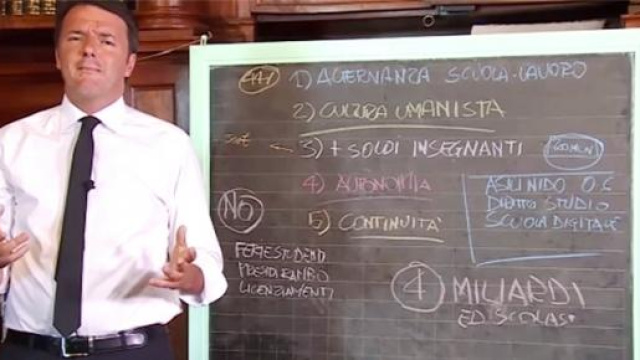 1) ALTERNANZA SCUOLA-LAVORO
2) CULTURA UMANISTA
3) + SOLDI INSEGNANTI
4) AUTONOMIA
5) CONTINUITÀ
ASILI NIDO 0.6
DIRITTO STUDIO
SCUOLA DIGITALE
NO
PRESIDI RAMBO
LICENZIAMENTI
4 MILIARDI
ED. SCOLAS.